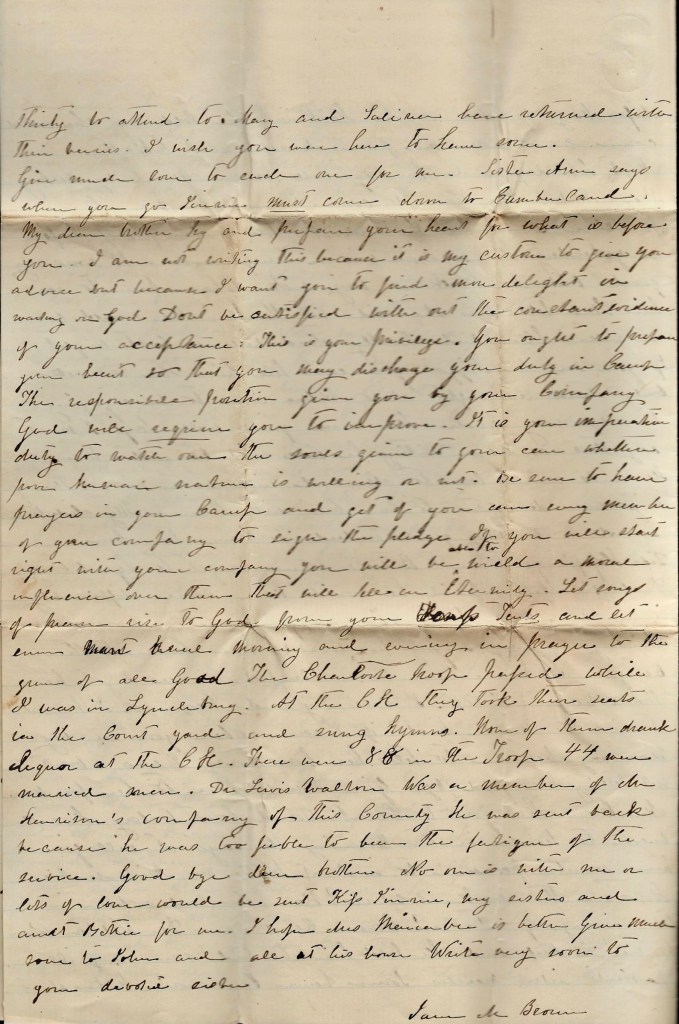 thirty to attend to. Mary and have returned with
their berries. I wish you were here to have some.
Give much love to each one for me. Sister Ann says
when you go Jinnie must come down to Cumberland.
My dear brother try and prepare your heart for what is before
you. I am not writing this because it is my custom to give you
advice but because I want you to find more delight in
waiting on God Dont be satisfied with out the constant evidence
of your acceptance: This is your privilege. You ought to prepare
your heart so that you may discharge your duty in Camp
The responsible position given you by your Company
God will require you to improve. It is your imperative
duty to watch over the souls given to your care whether
poor human nature is willing or not. Be sure to have
prayers in your Camp and get if you can every member
of your company to sign the pledge If you will start
right with your company you will be able to wield a moral
influence over them that will be in Eternity. Let songs
of praise rise to God from your Tents and let
every kneel morning and evening in prayer to the
giver of all Good The Charlotte troop passed while
I was in Lynchburg. At the C H they took their seats
in the Court yard and sung hymns. None of them drank
liquor at the C H. There were 88 in the Troop 44 were
married men. Dr Lewis Walton was a member of Mr
Harrison's company of this County He was sent back
because he was too feeble to bear the fatigue of the
service. Good bye dear brother No one is with me or
lots of love would be sent Kiss Jinnie, my sisters and
aunt Bettie for me. I hope Mrs is better Give much
love to John and all at his house Write very soon to
your devoted sister
M Brown